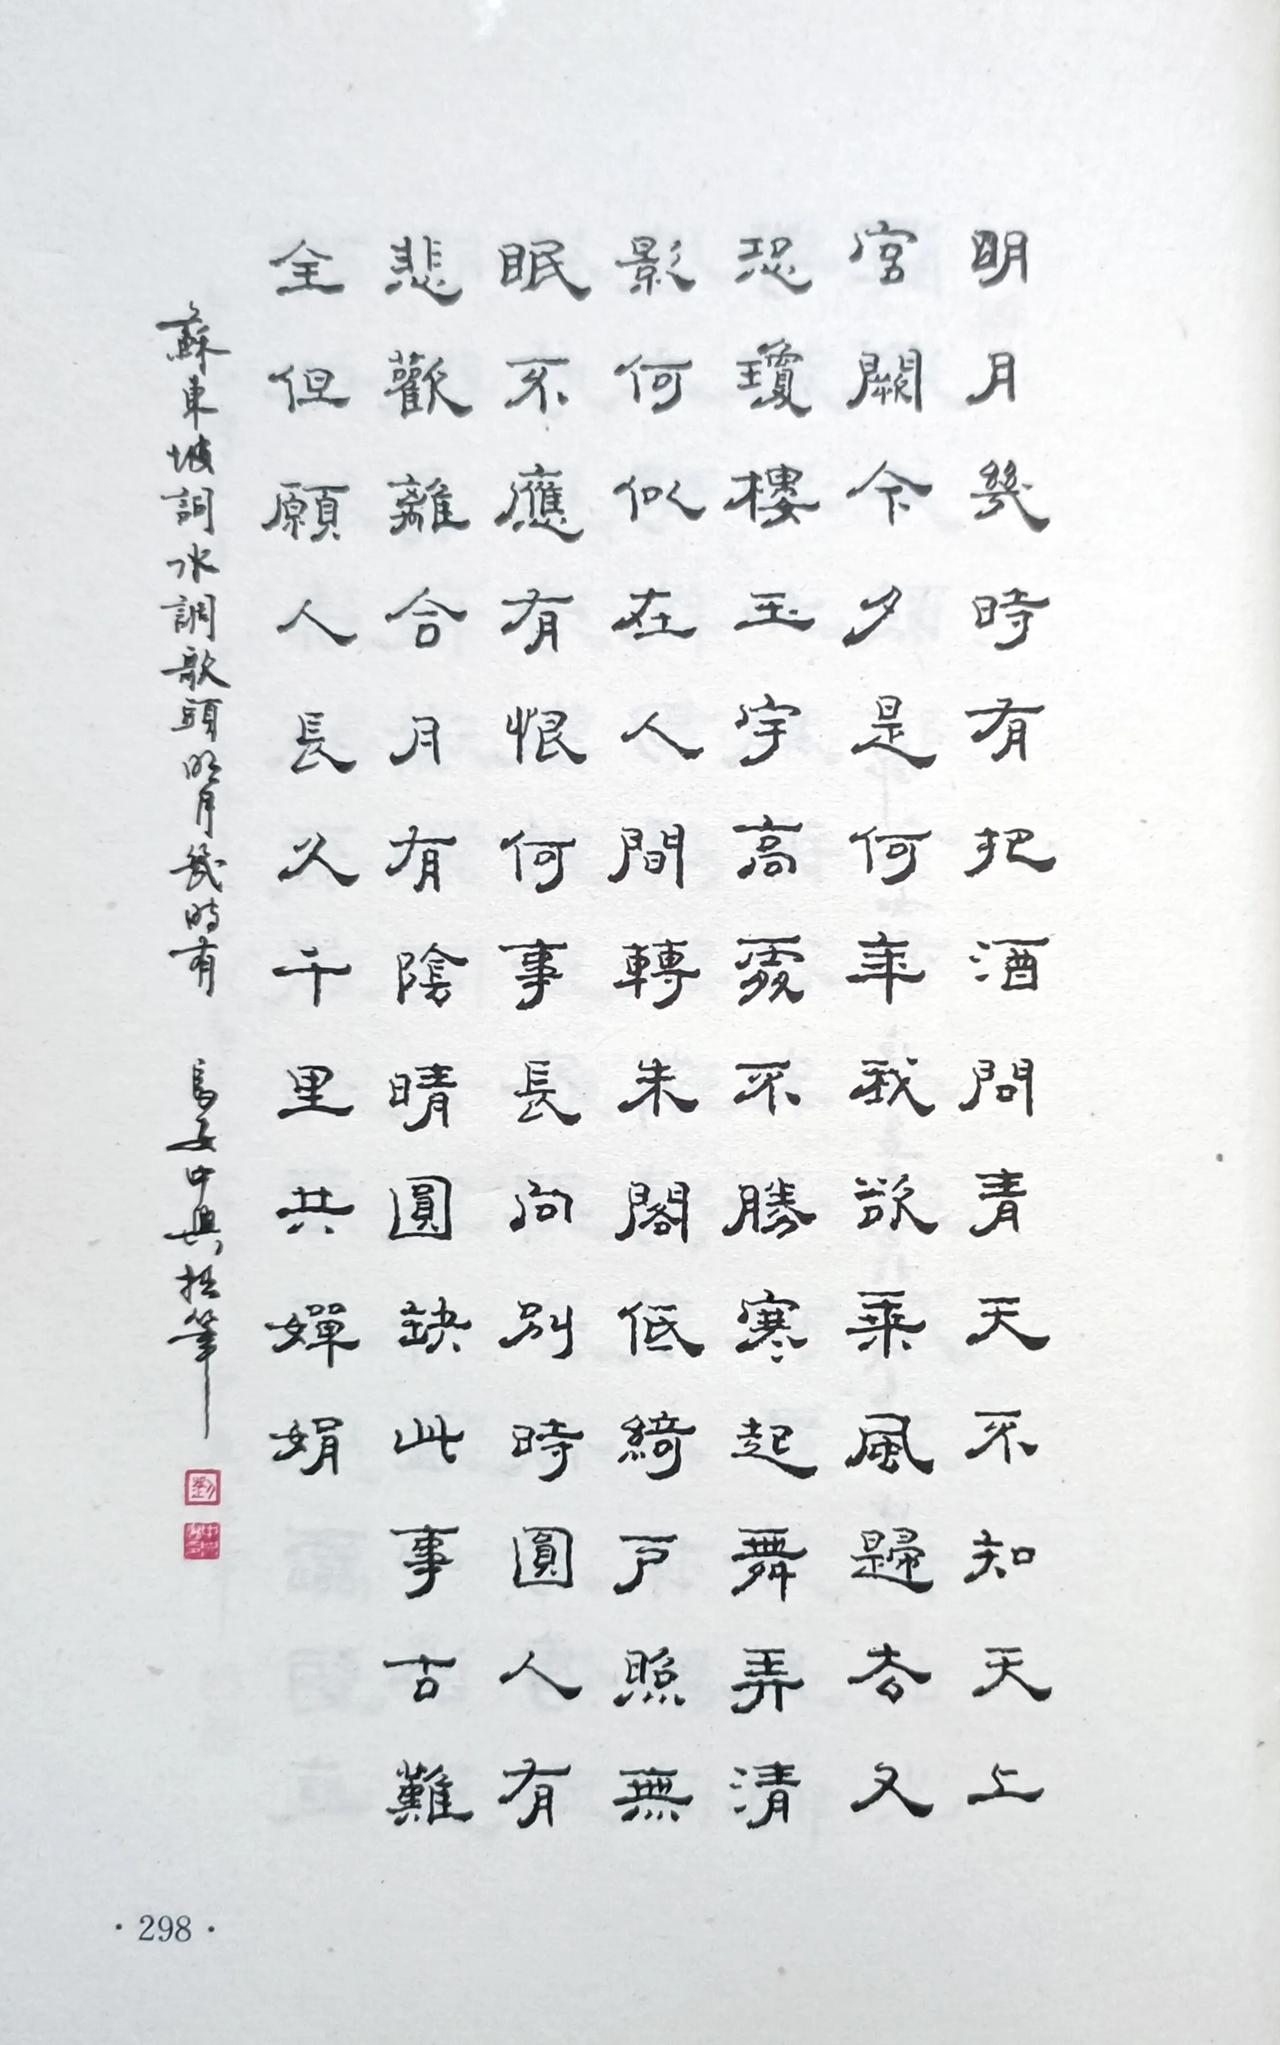 明月幾時有把酒問青天不知天上
宮闕今夕是何年我欲乘風歸去又
恐瓊樓玉宇高處不勝寒起舞弄清
影何似在人間轉朱閣低綺戶照無
眠不應有恨何事長向別時圓人有
悲歡離合月有陰晴圓缺此事古難
全但願人長久千里共嬋娟
蘇東坡詞水調歌頭明月幾時有 長安中興拙筆
劉
·298·